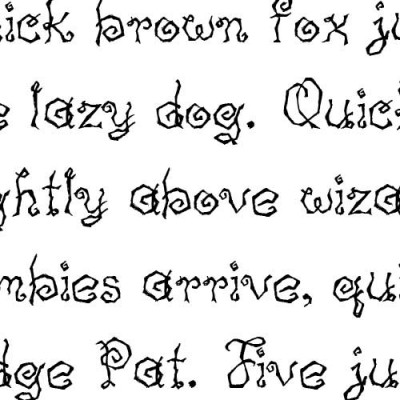 ick brown fox ju
e lazy dog. Quick
ghtly above wiza
mbies arrive, qui
dge Pat. Five ju